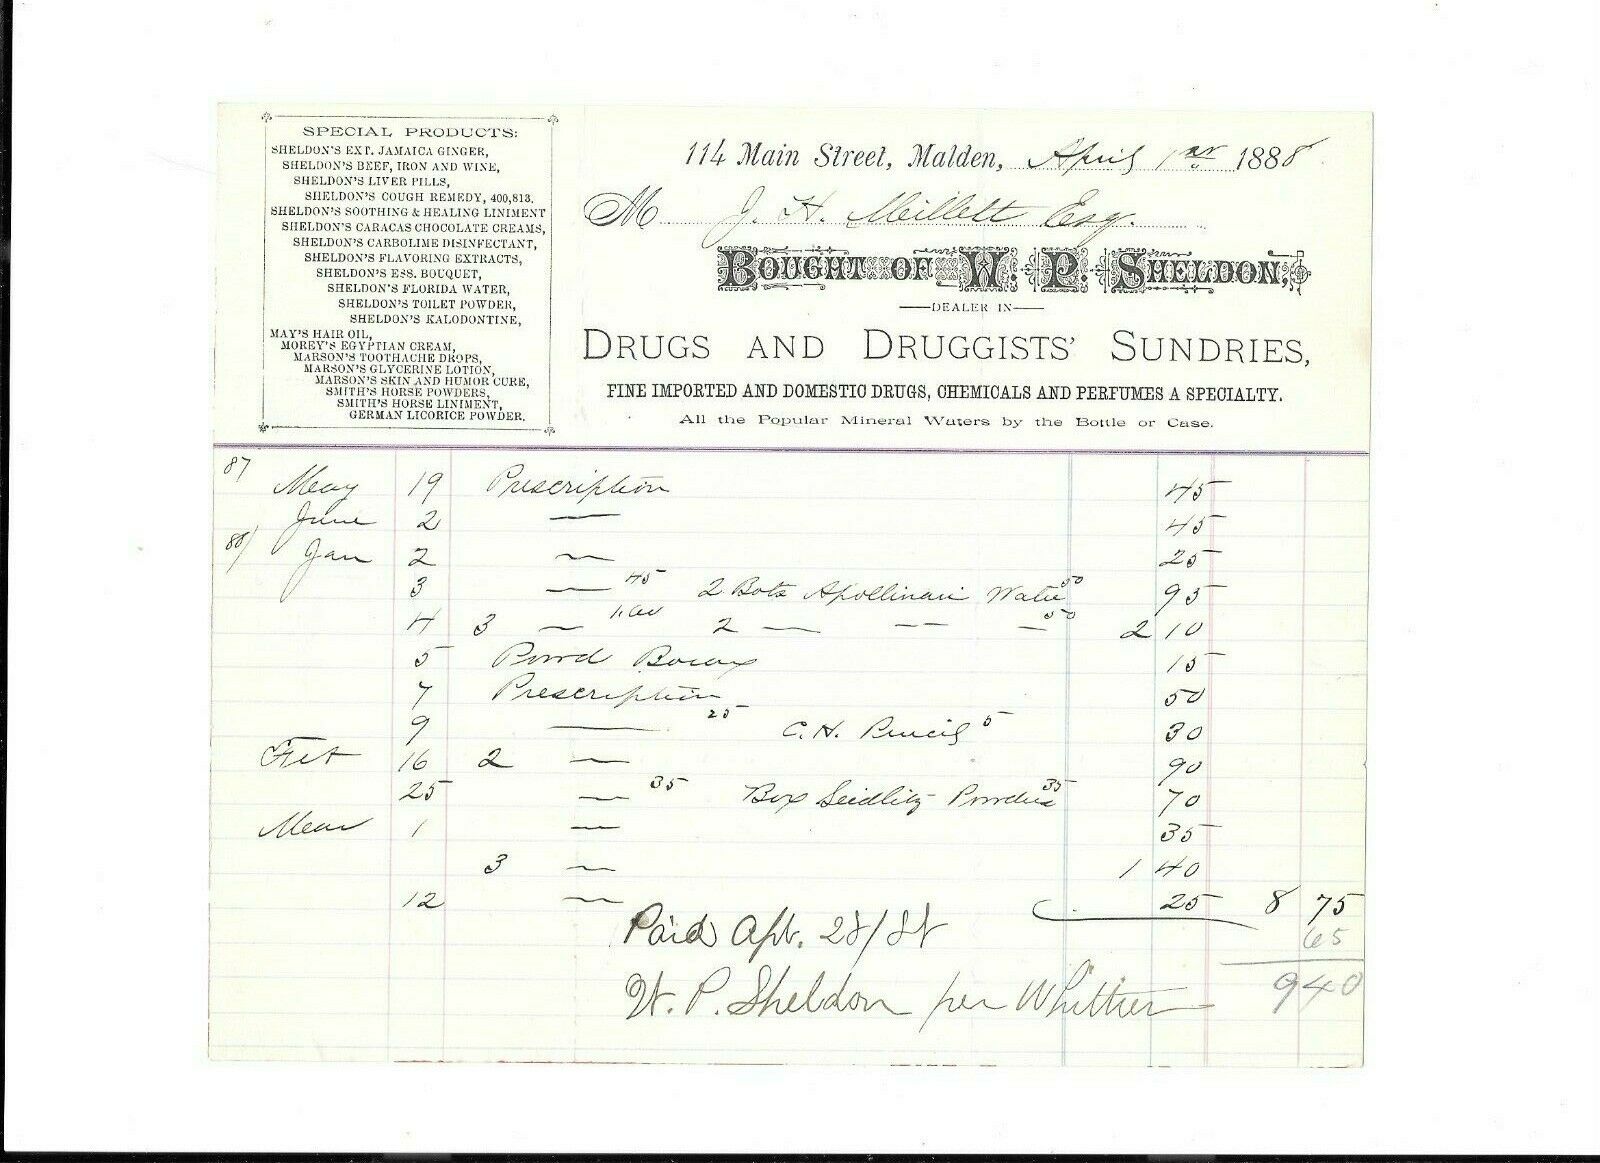 SPECIAL PRODUCTS:
SHELDON'S EXT. JAMAICA GINGER,
SHELDON'S BEEF, IRON AND WINE,
SHELDON'S LIVER PILLS,
SHELDON'S COUGH REMEDY, 400,813.
SHELDON'S SOOTHING & HEALING LINIMENT
SHELDON'S CARACAS CHOCOLATE CREAMS,
SHELDON'S CARBOLIME DISINFECTANT,
SHELDON'S FLAVORING EXTRACTS,
SHELDON'S ESS. BOUQUET,
SHELDON'S FLORIDA WATER,
SHELDON'S TOILET POWDER,
SHELDON'S KALODONTINE,
MAY'S HAIR OIL,
MOREY'S EGYPTIAN CREAM,
MARSON'S TOOTHACHE DROPS,
MARSON'S GLYCERINE LOTION,
MARSON'S SKIN AND HUMOR CURE,
SMITH'S HORSE POWDERS,
SMITH'S HORSE LINIMENT,
GERMAN LICORICE POWDER.
114 Main Street, Malden, April 1st 1888
M J. H. Millett Esq.
BOUGHT OF W. P. SHELDON,
DEALER IN
DRUGS AND DRUGGISTS' SUNDRIES,
FINE IMPORTED AND DOMESTIC DRUGS, CHEMICALS AND PERFUMES A SPECIALTY.
All the Popular Mineral Waters by the Bottle or Case.
87 May 19 Prescription 45
June 2 — 45
88/ Jan 2 — 25
3 — 45 2 Bots Apollinari Water 50 95
4 3 — 1.60 2 — — — 50 2 10
5 Powd Borax 15
7 Prescription 50
9 — 25 C. H. Pencils 5 30
Feb 16 2 — 90
25 — 35 Box Seidlitz Powders 35 70
Mar 1 — 35
3 — 1 40
12 — 25 8 75
65
Paid Apr. 28/88
940
W. P. Sheldon per Whittier